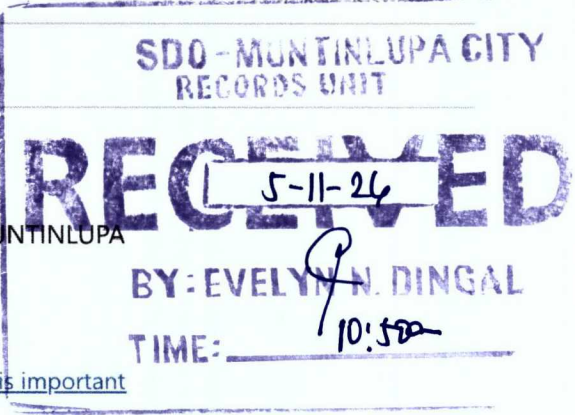 SDO-MUNTINLUPA CITY
RECORDS UNIT
RECEIVED
5-11-26
UNTINLUPA
BY: EVELYN N. DINGAL
TIME:
is important